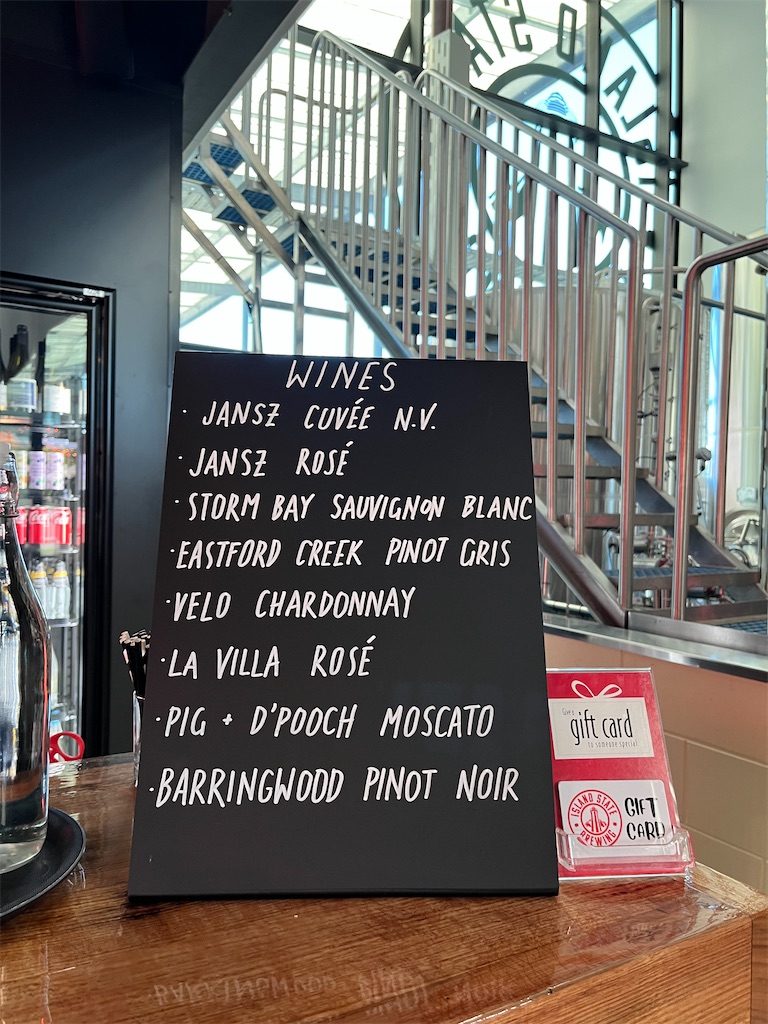 WINES
· JANSZ CUVÉE N.V.
· JANSZ ROSÉ
· STORM BAY SAUVIGNON BLANC
· EASTFORD CREEK PINOT GRIS
· VELO CHARDONNAY
· LA VILLA ROSÉ
· PIG + D'POOCH MOSCATO
· BARRINGWOOD PINOT NOIR
Give a
gift card
to someone special
ISLAND STATE
BREWING
GIFT
CARD